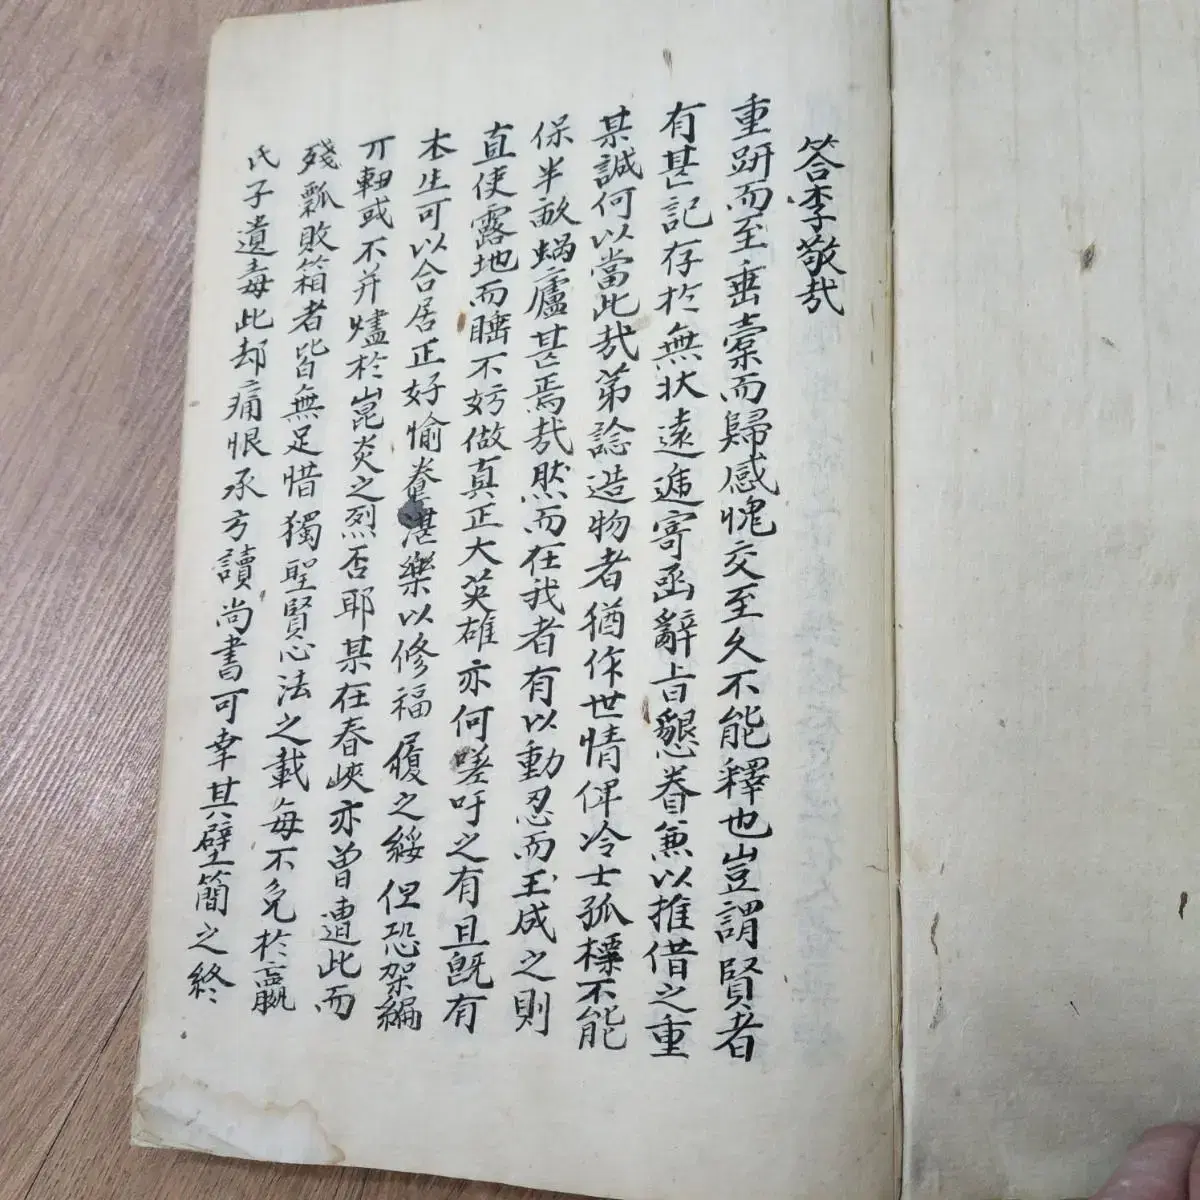 答李敬哉
重趼而至垂槖而歸感愧交至久不能釋也豈謂賢者
有甚記存於無状遠遞寄函辭旨懇眷兼以推借之重
某誠何以當此哉第諗造物者猶作世情俾冷士孤標不能
保半畝蝸廬甚焉哉然而在我者有以動忍而玉成之則
直使露地而睡不妨做真正大英雄亦何嗟吁之有且旣有
本生可以合居正好愉眷湛樂以修福履之綏但恐架編
丌軸或不并燼於崑炎之烈否耶某在春峽亦曾遭此而
殘瓢敗箱者皆無足惜獨聖賢心法之載每不免於嬴
氏子遺毒此却痛恨承方讀尚書可幸其壁簡之終